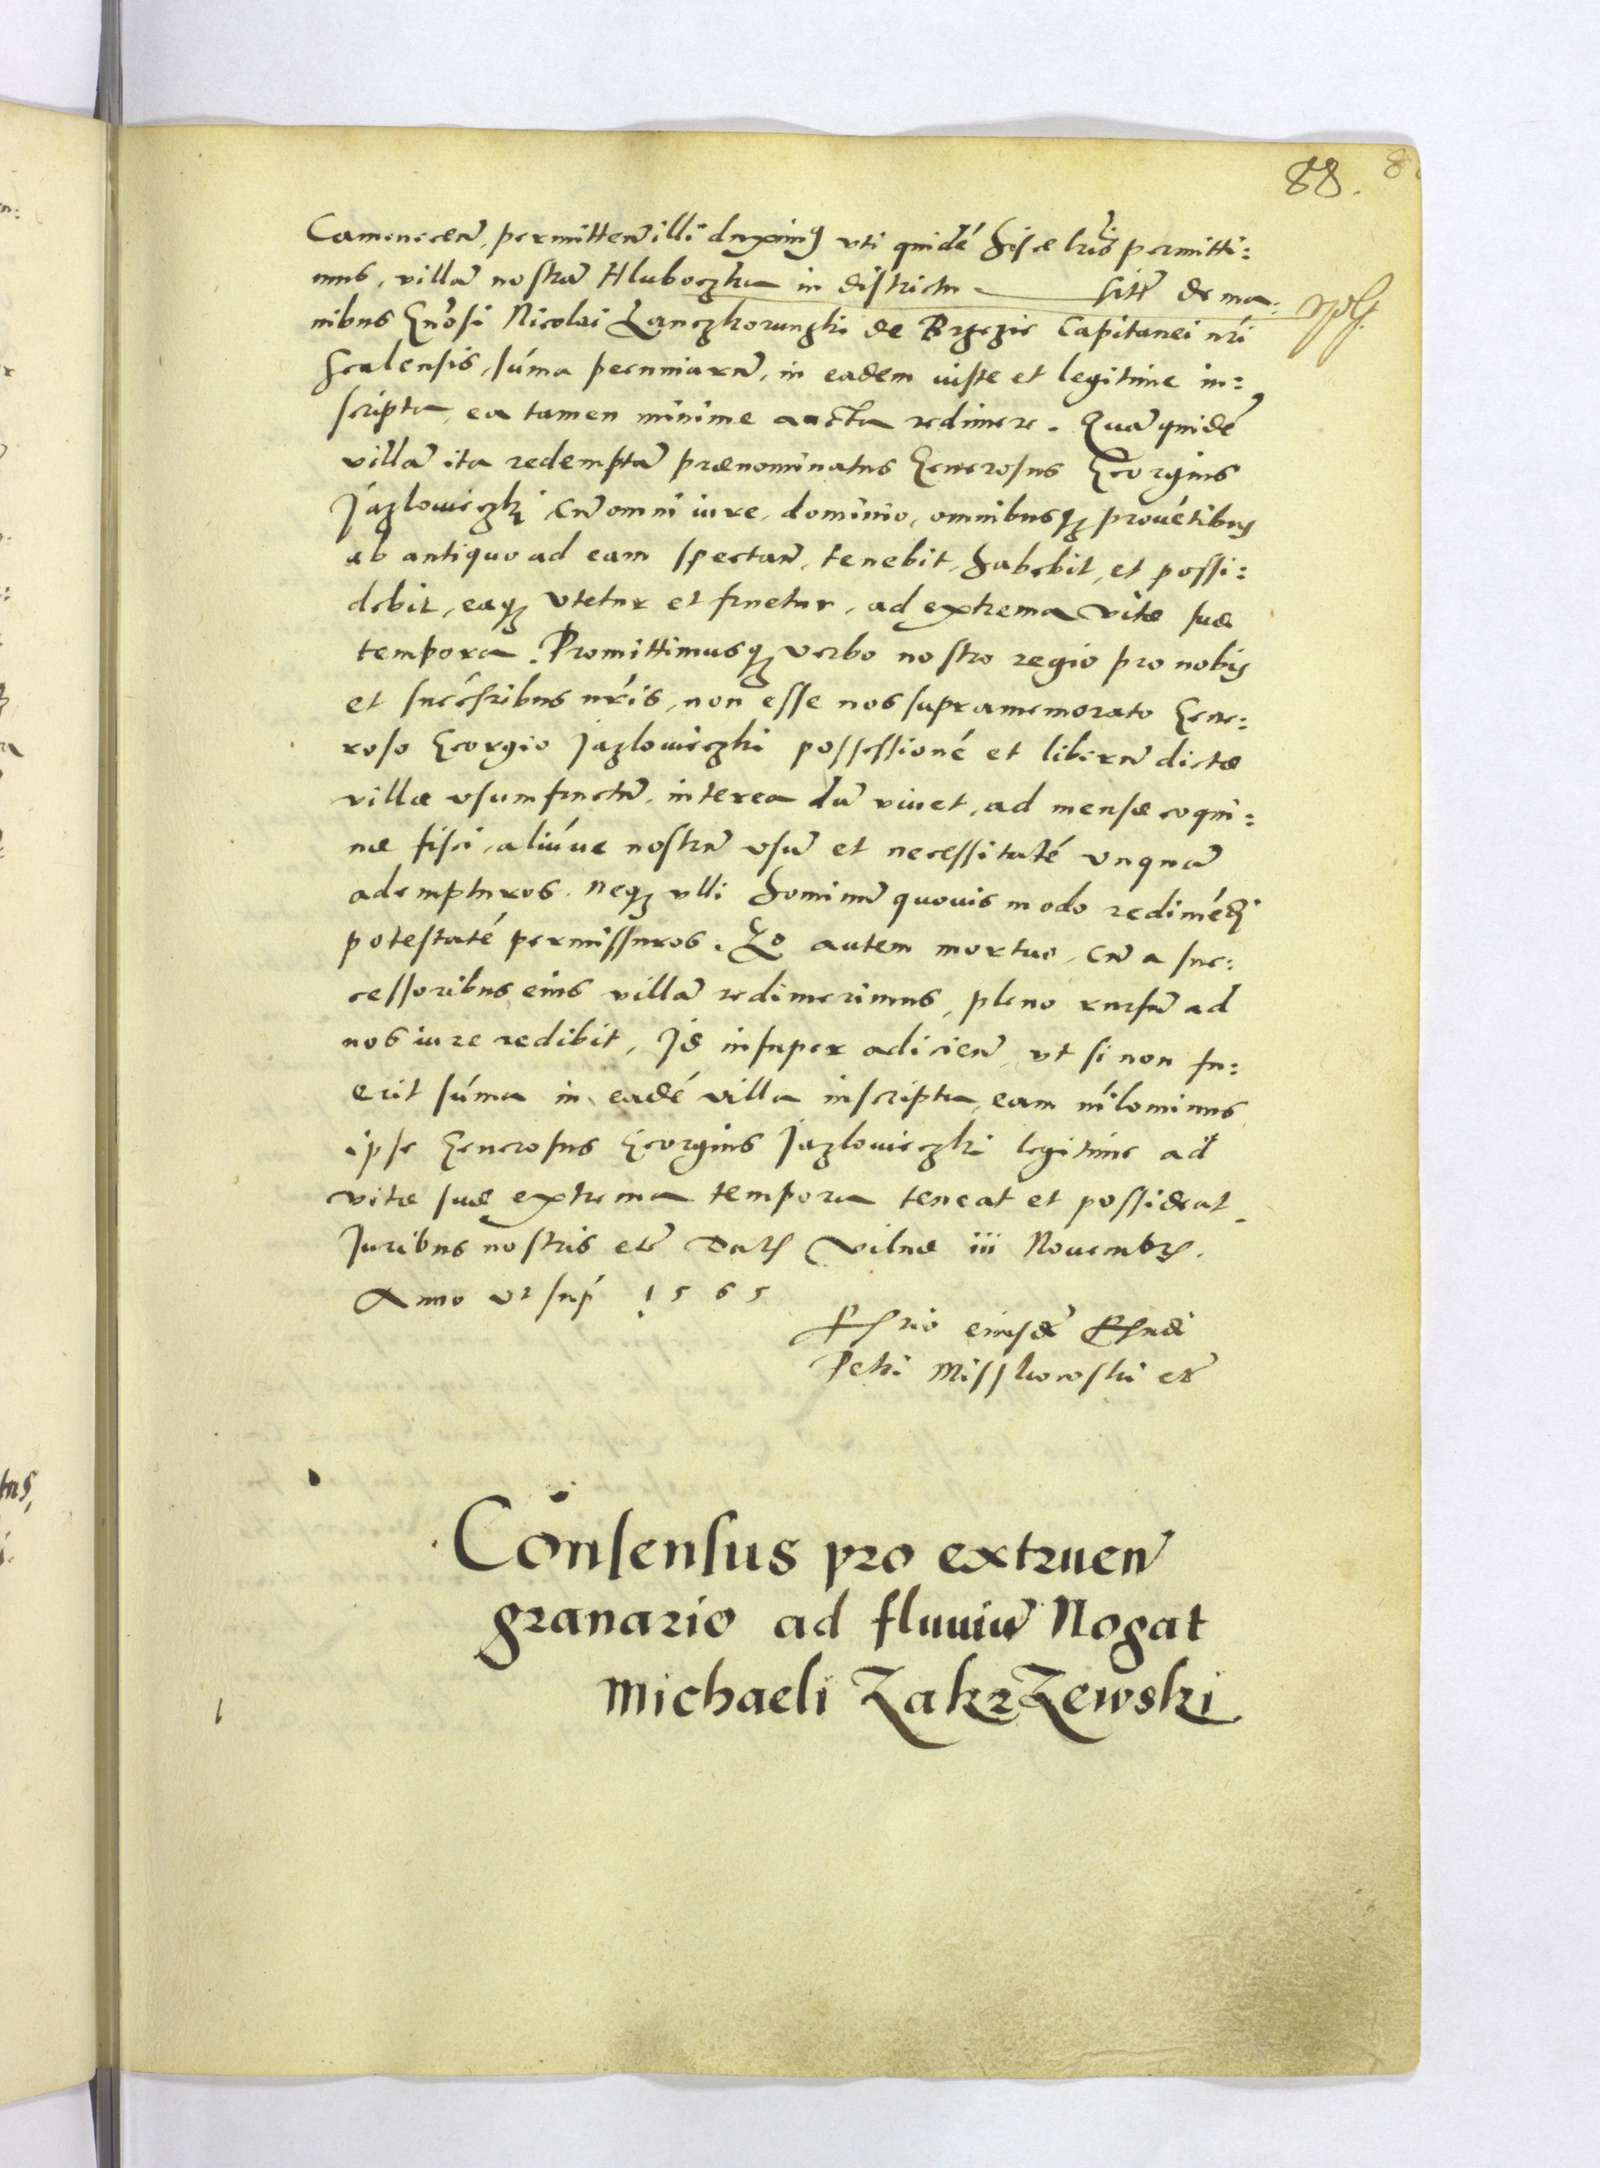 88.
Camenecen̄, permitten̄ illi duximus vti quidē hisce lrīs permitti:
mus, villam̄ nostram̄ Hluboczka in districtu — siten̄ de ma:
nibus Gn̄osi Nicolai Lanczkorunzki de Brzezie Capitanei nr̄i
Scalensis, sūma pecuniarū, in eadem iuste et legitime in:
scripta, ea tamen minime aucta redimere. Quam̄ quidē
villam̄ ita redemptam̄ prænominatus Generosus Georgius
Jazlowieczki cum̄ omni iure, dominio, omnibusq; prouētibus
ab antiquo ad eam spectan̄, tenebit, habebit, et possi:
debit, eaq; vtetur et fruetur, ad extrema vitæ suæ
tempora. Promittimusq; verbo nostro regio pro nobis
et succēsribus nr̄is, non esse nos supramemorato Gene:
roso Georgio Jazlowieczki possessionē et liberum̄ dictæ
villæ vsumfructum̄, interea dum̄ viuet, ad mensæ coqui:
næ fisci, aliūue nostrum̄ vsum̄ et necessitatē vnquam̄
adempturos. neq; vlli hominum̄ quouis modo redimēdi
potestatē permissuros. Eo autem mortuo, cum̄ a suc:
cessoribus eius villam̄ redimerimus, pleno rursum̄ ad
nos iure redibit, Id insuper adicien̄ vt si non fu:
erit sūma in eadē villa inscripta, eam nīlominus
ipse Generosus Georgius Jazlowieczki legitime ad
vitæ suæ extrema tempora teneat et possideat.
Juribus nostris etc̄ Dat̄ Vilnæ iii Nouembr̄.
Anno vt sup̄ 1565
eiusdē Rn̄di
Petri Misskowski etc̄
Consensus pro extruen̄
granario ad fluuium̄ Nogat
Michaeli ZakrZewski